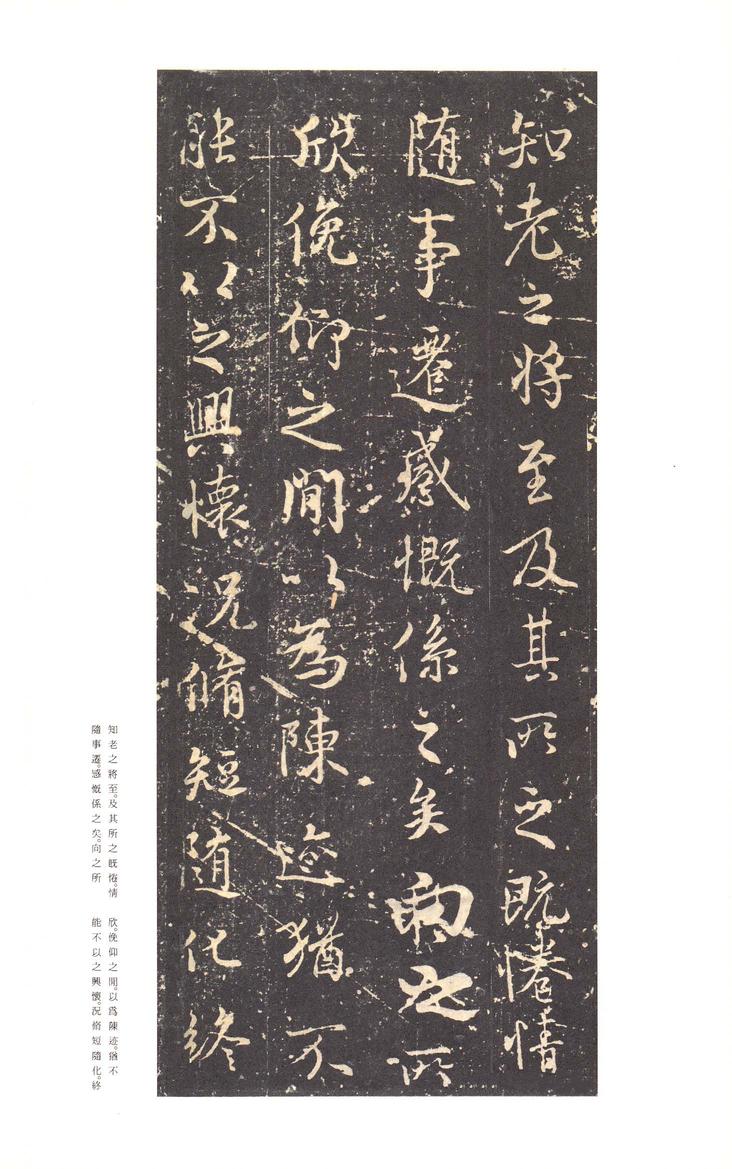 知老之將至及其所之既惓情
隨事遷感慨係之矣向之所
欣俛仰之閒以為陳迹猶不
能不以之興懷況脩短隨化終
知老之將至。及其所之既惓。情
隨事遷。感慨係之矣。向之所
欣。俛仰之閒。以爲陳迹。猶不
能不以之興懷。況脩短隨化。終